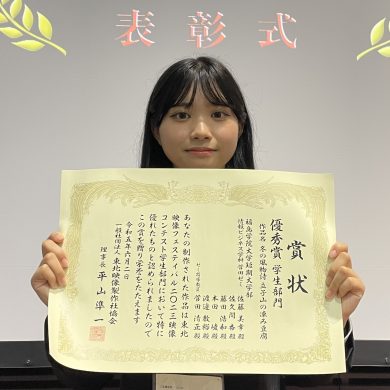 表彰式
賞状
優秀賞 学生部門
作品名 冬の風物詩 立子山の凍み豆腐
福島学院大学短期大学部
情報ビジネス学科
佐藤 美幸 殿
佐久川 杏 殿
藤田 浩和 殿
渡邉 敦裕 殿
菅田 清正 殿
あなたの制作された作品は東北
映像フェスティバル二〇二三映像
コンテスト学生部門において特に
優れたものと認められましたので
この賞を贈り栄誉をたたえます
令和五年六月二日
一般社団法人 東北映像製作社協会
理事長 平山 準一